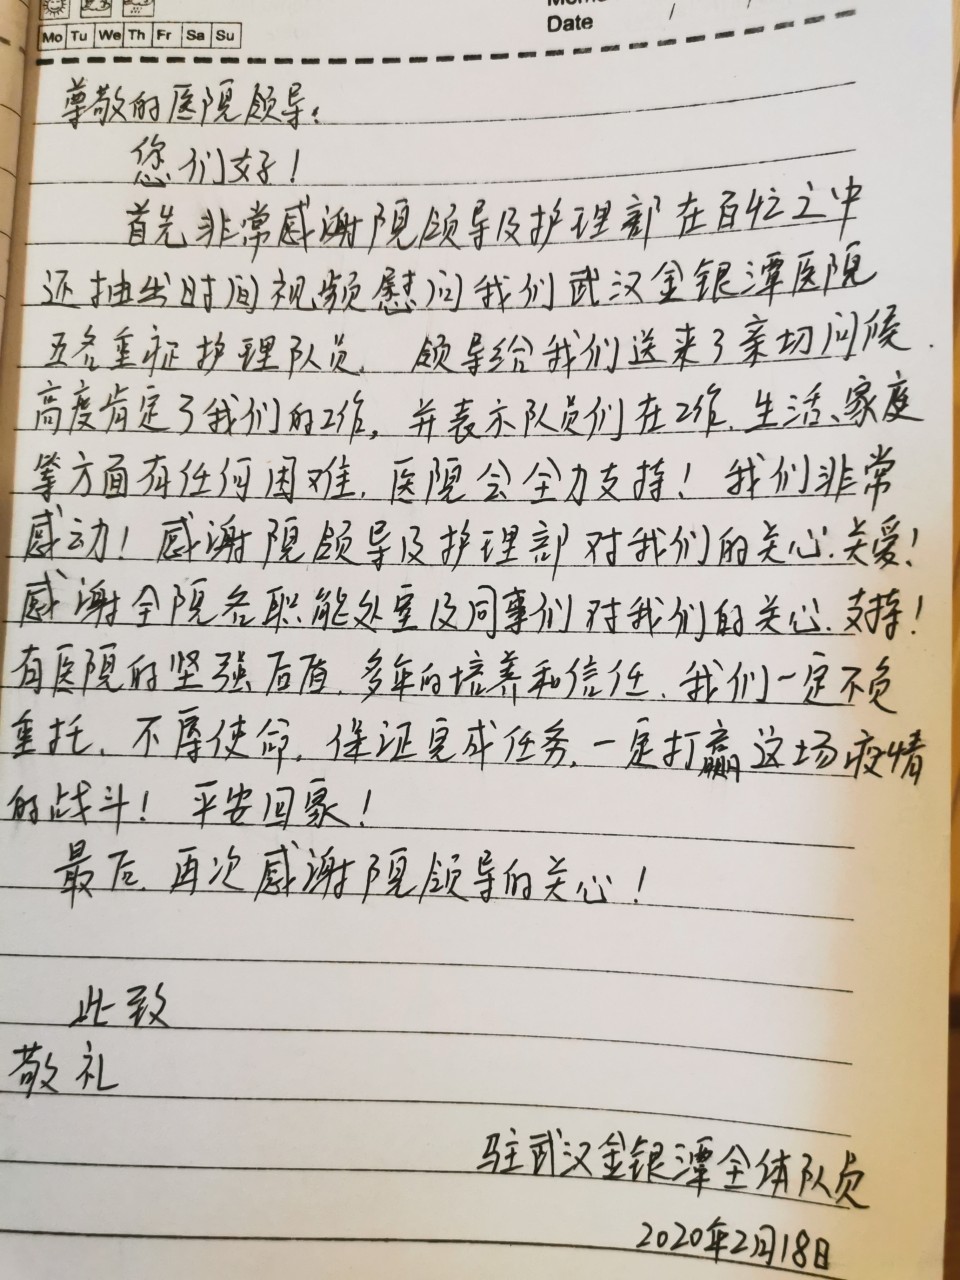 Mo Tu We Th Fr Sa Su
Date / /
尊敬的医院领导:
您们好!
首先非常感谢院领导及护理部在百忙之中
还抽出时间视频慰问我们武汉金银潭医院
五名重症护理队员，领导给我们送来了亲切问候，
高度肯定了我们的工作，并表示队员们在工作、生活、家庭
等方面有任何困难，医院会全力支持！我们非常
感动！感谢院领导及护理部对我们的关心、关爱！
感谢全院各职能处室及同事们对我们的关心、支持！
有医院的坚强后盾，多年的培养和信任，我们一定不负
重托，不辱使命，保证完成任务，一定打赢这场疫情
的战斗！平安回家！
最后，再次感谢院领导的关心！
此致
敬礼
驻武汉金银潭全体队员
2020年2月18日